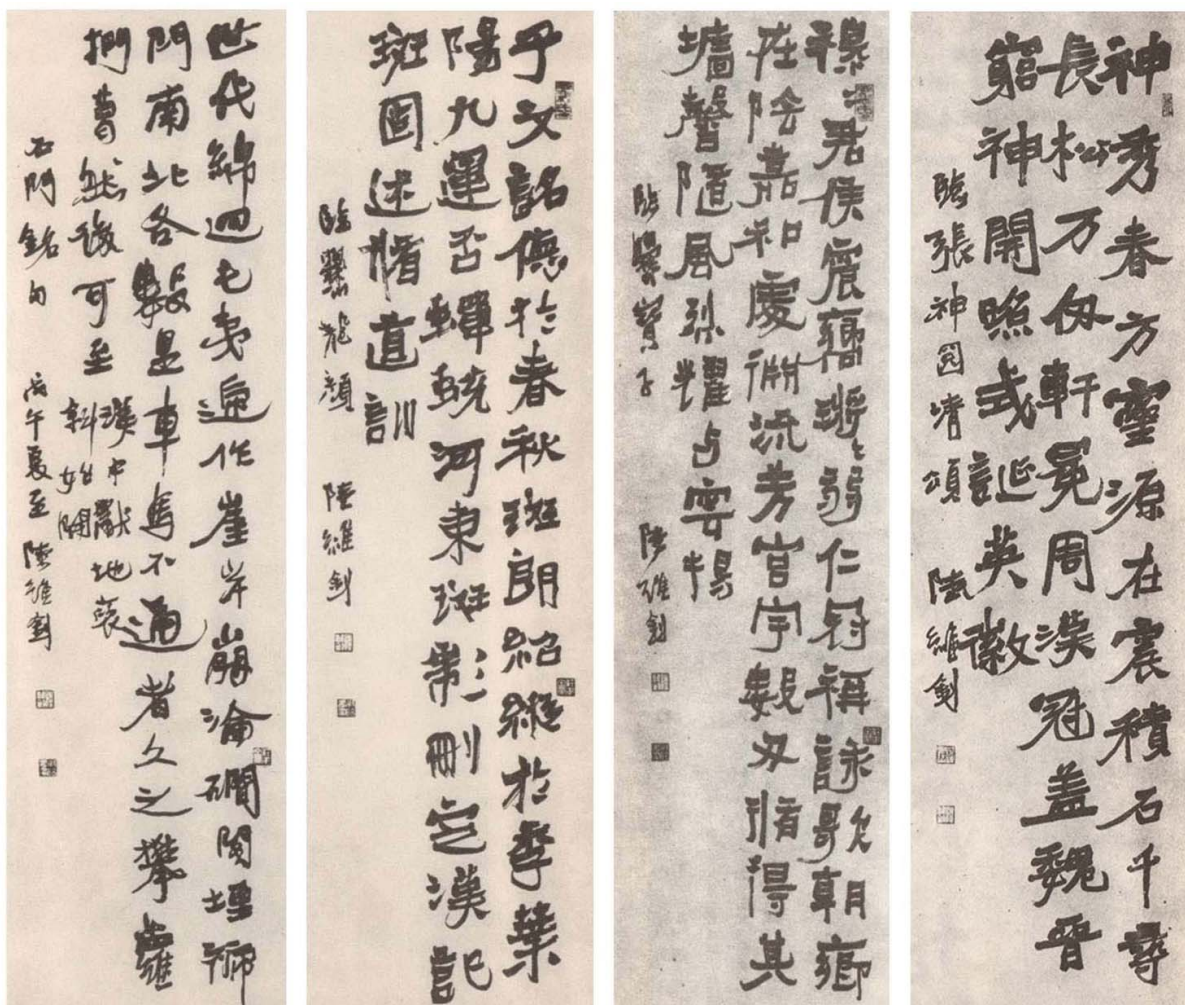 神秀春方靈源在震積石千尋
長松万仞軒冕周漢冠盖魏晋
窮神開照式誕英徽
臨張神囧清頌 陸維釗
穆〻君侯震響鏘〻弱仁冠稱詠歌朝鄉
在陰嘉和處淵流芳宮宇數仞循得其
墻馨隨風烈耀与雲揚
臨爨寶子 陸維釗
子文銘德於春秋斑朗紹縱於季葉
陽九運否蟬蛻河東班彪刪定漢記
斑固述脩道訓
臨爨龍顏 陸維釗
世代綿迴屯夷遞作崖岸崩淪磵閣堙褫
門南北各數里車馬不通者久之攀蘿
捫葛然後可至
漢中獻地褒
斜始開
石門銘句 丙午夏至 陸維釗